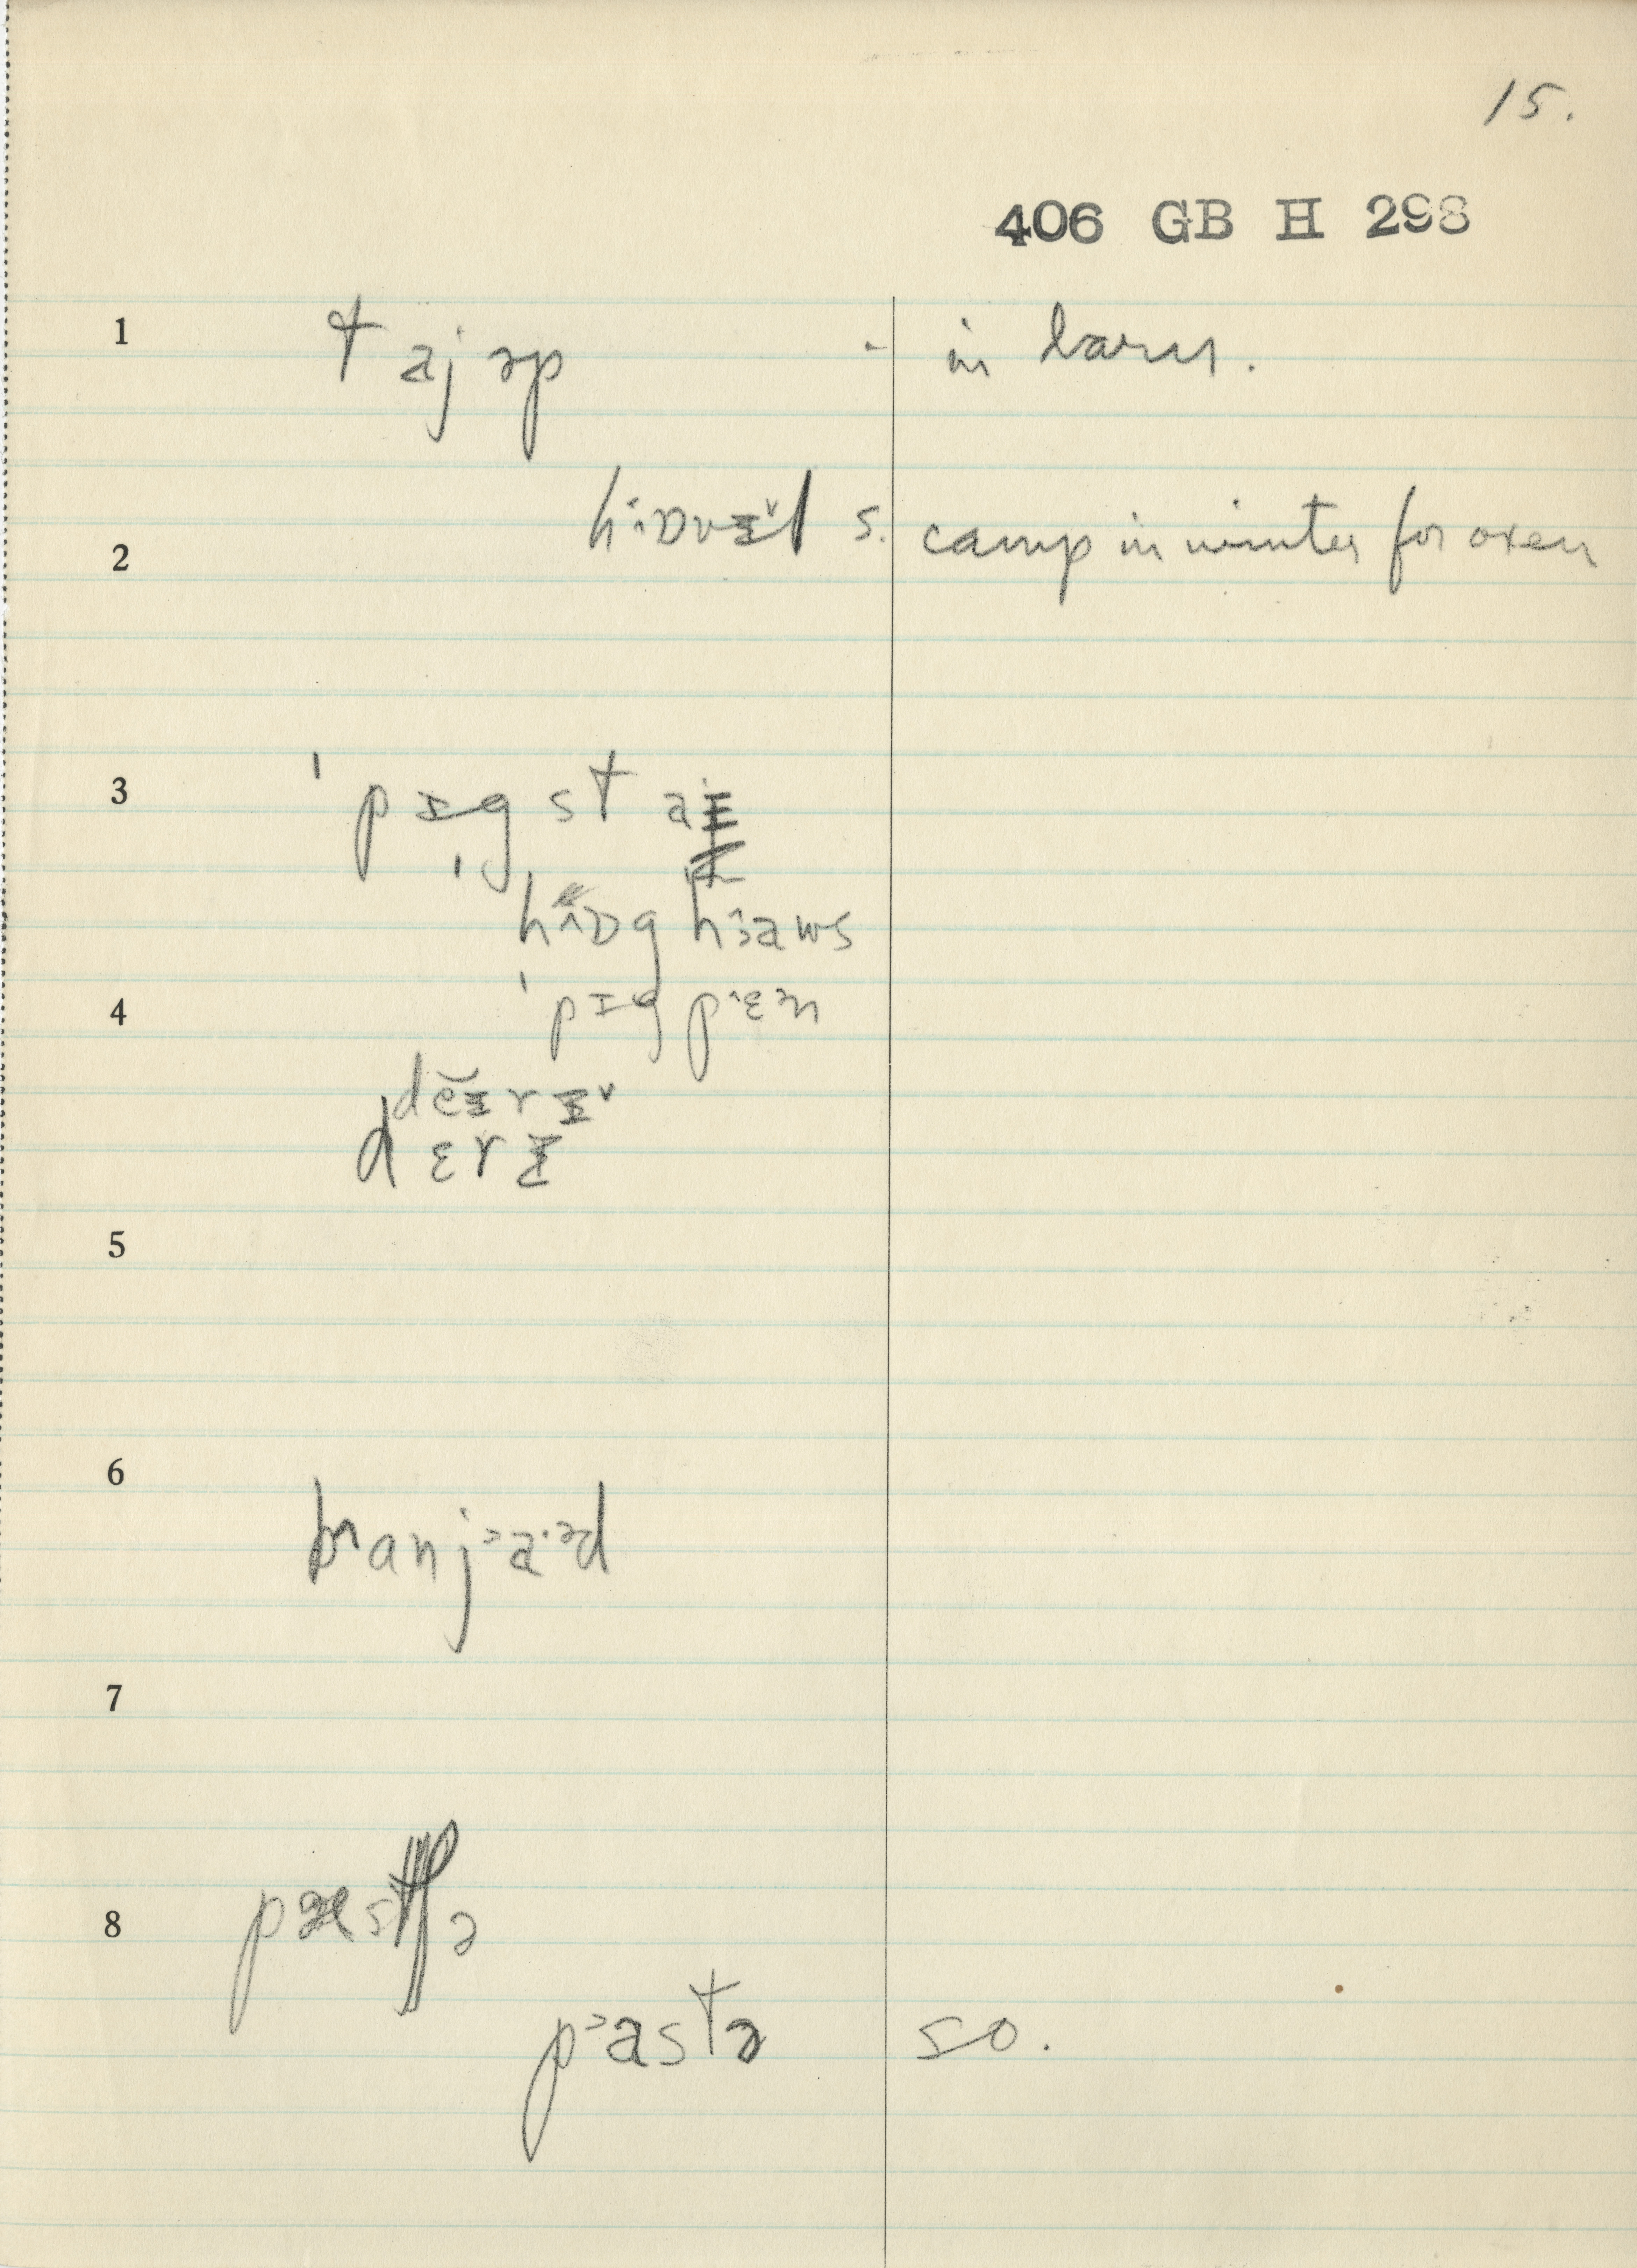 15.
406 GB H 298
1 taj əp - in barn.
2 hɒvɪl s. camp in winter for oxen
3 'pɪg staɪ
hɒg haws
4 'pɪg pɛn
deɪrɪ
dɛrɪ
5
6
7
8
pastə so.